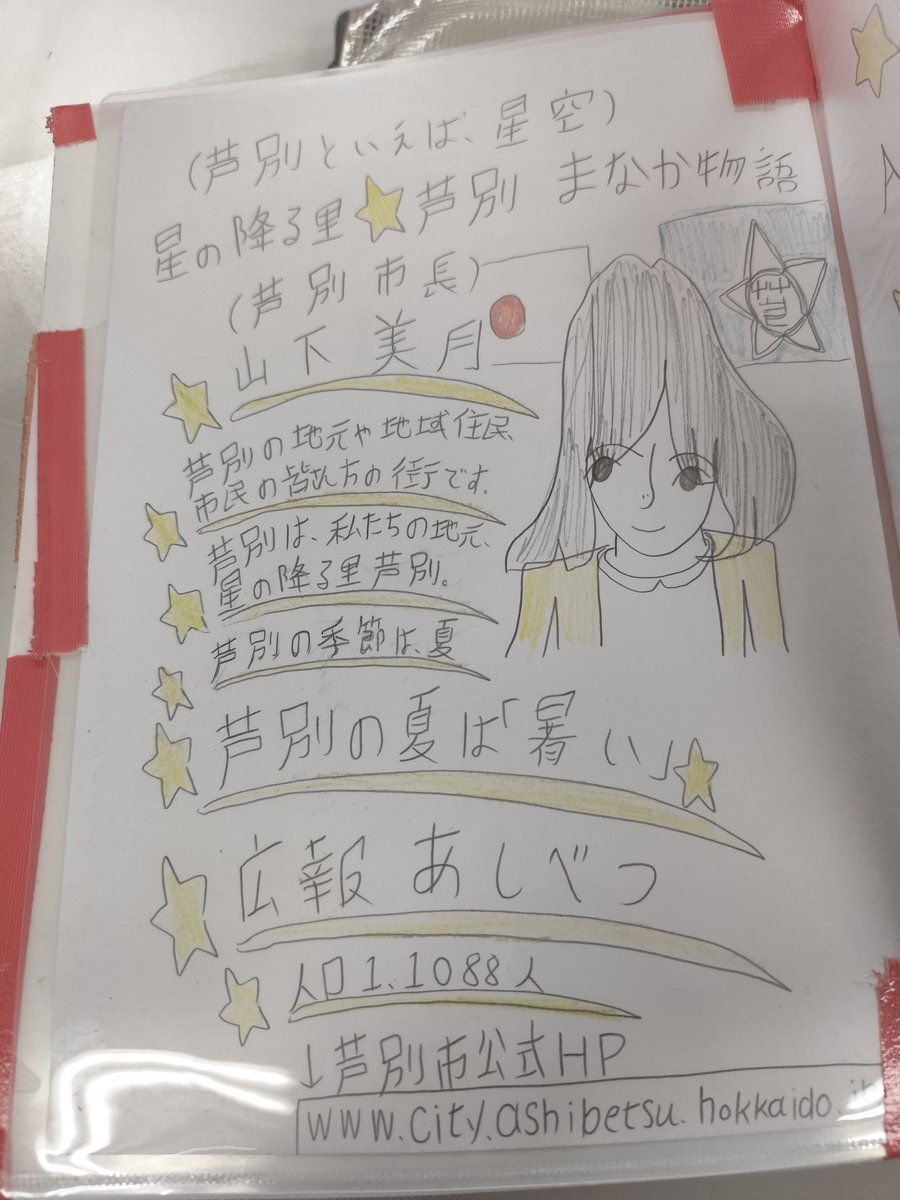 (芦別といえば、星空)
星の降る里★芦別 まなか物語
(芦別市長)
山下美月
芦別の地元や地域住民、
市民の皆んの方の街です。
芦別は、私たちの地元、
星の降る里芦別。
芦別の季節は、夏
芦別の夏は「暑い」
広報あしべつ
人口1.1088人
↓芦別市公式HP
www.city.ashibetsu.hokkaido.